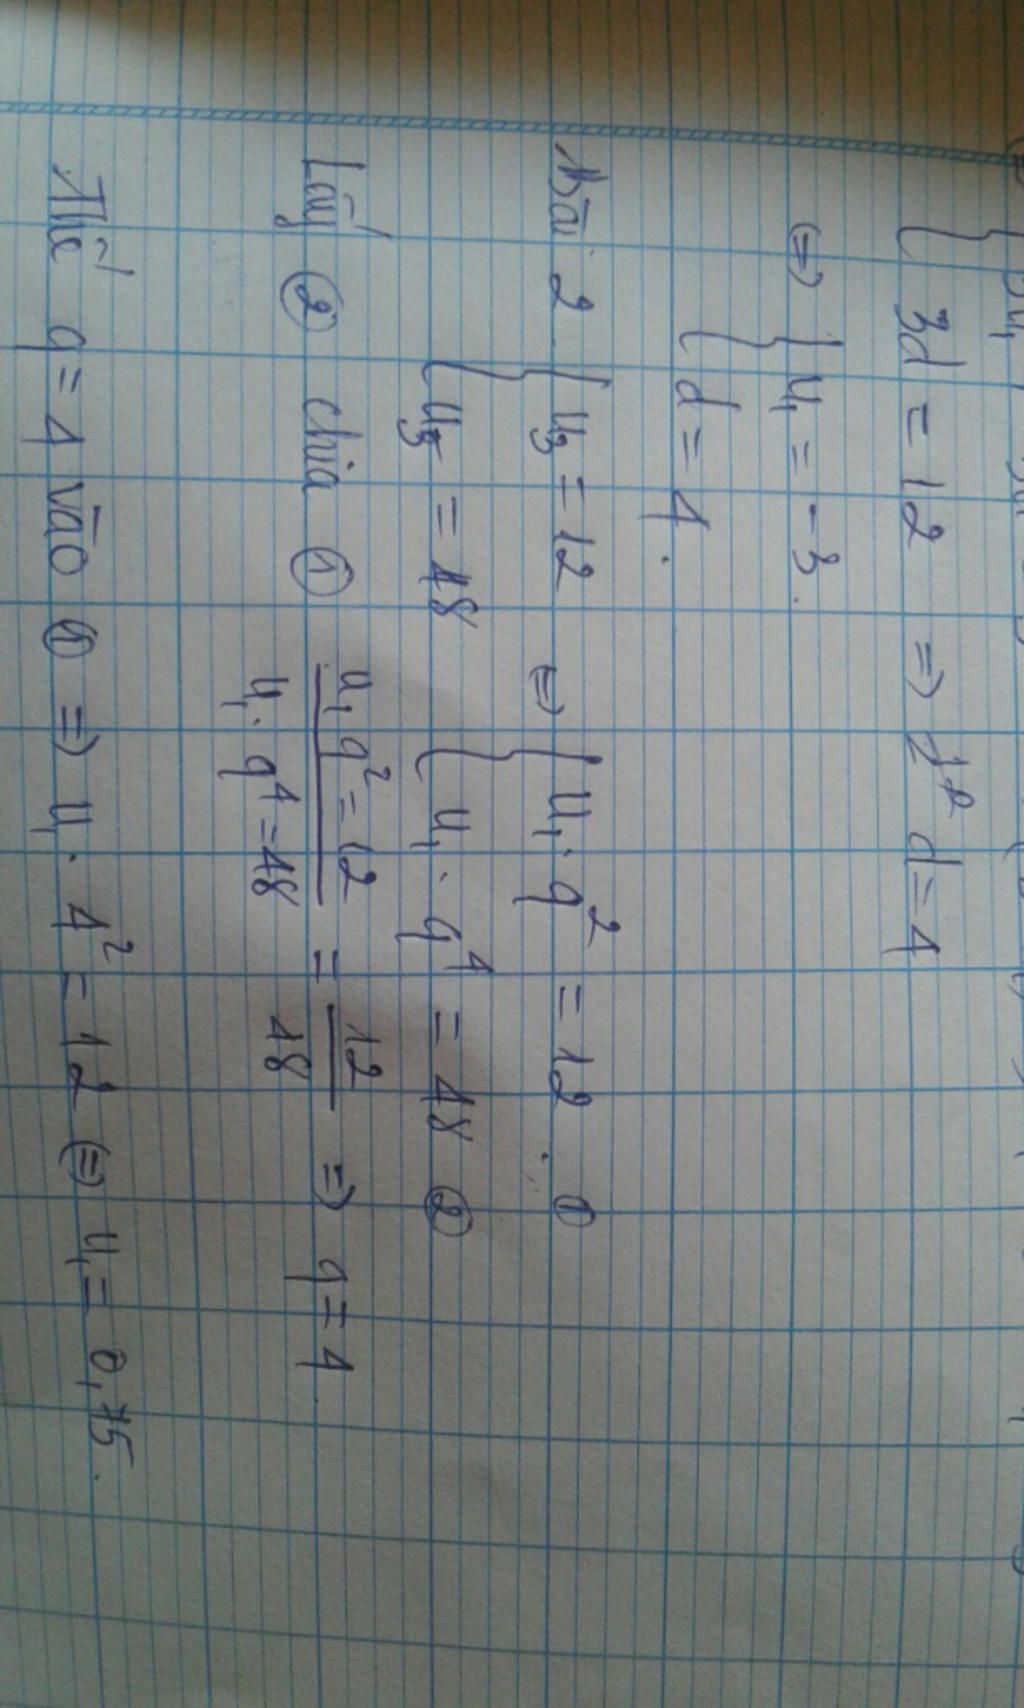 { 3d = 12 ⇒ d = 4
⇔ { u₁ = -3.
{ d = 4.
Bài 2 { u₃ = 12 ⇔ { u₁ . q² = 12. ①
{ u₅ = 48 { u₁ . q⁴ = 48 ②
Lấy ② chia ① u₁ q² = 12 / u₁ . q⁴ = 48 = 12 / 48 ⇒ q = 4
Thế q = 4 vào ① ⇒ u₁ . 4² = 12 ⇔ u₁ = 0,75.